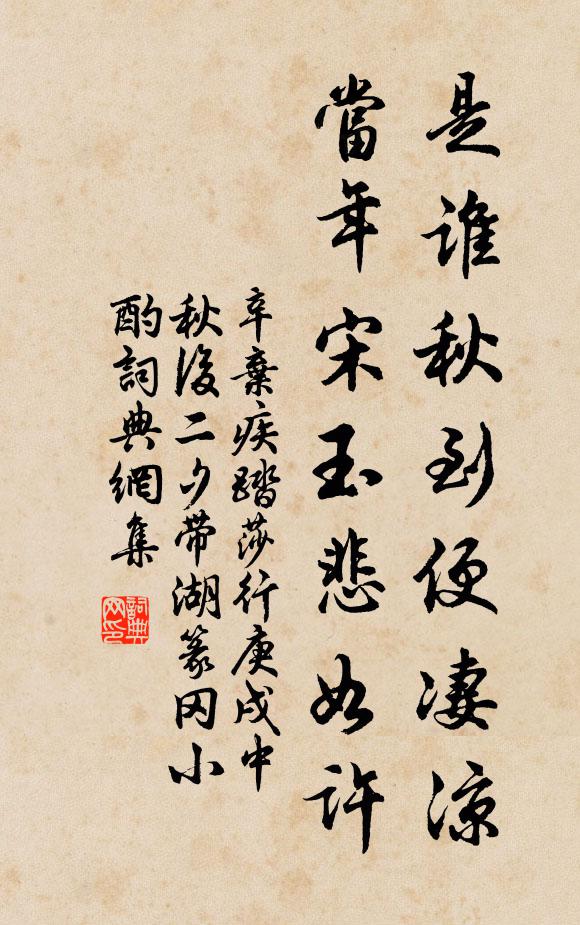 是誰秋到便凄涼
當年宋玉悲如許
辛棄疾踏莎行庚戌中
秋後二夕帶湖篆冈小
酌詞典網集
詞典
网印